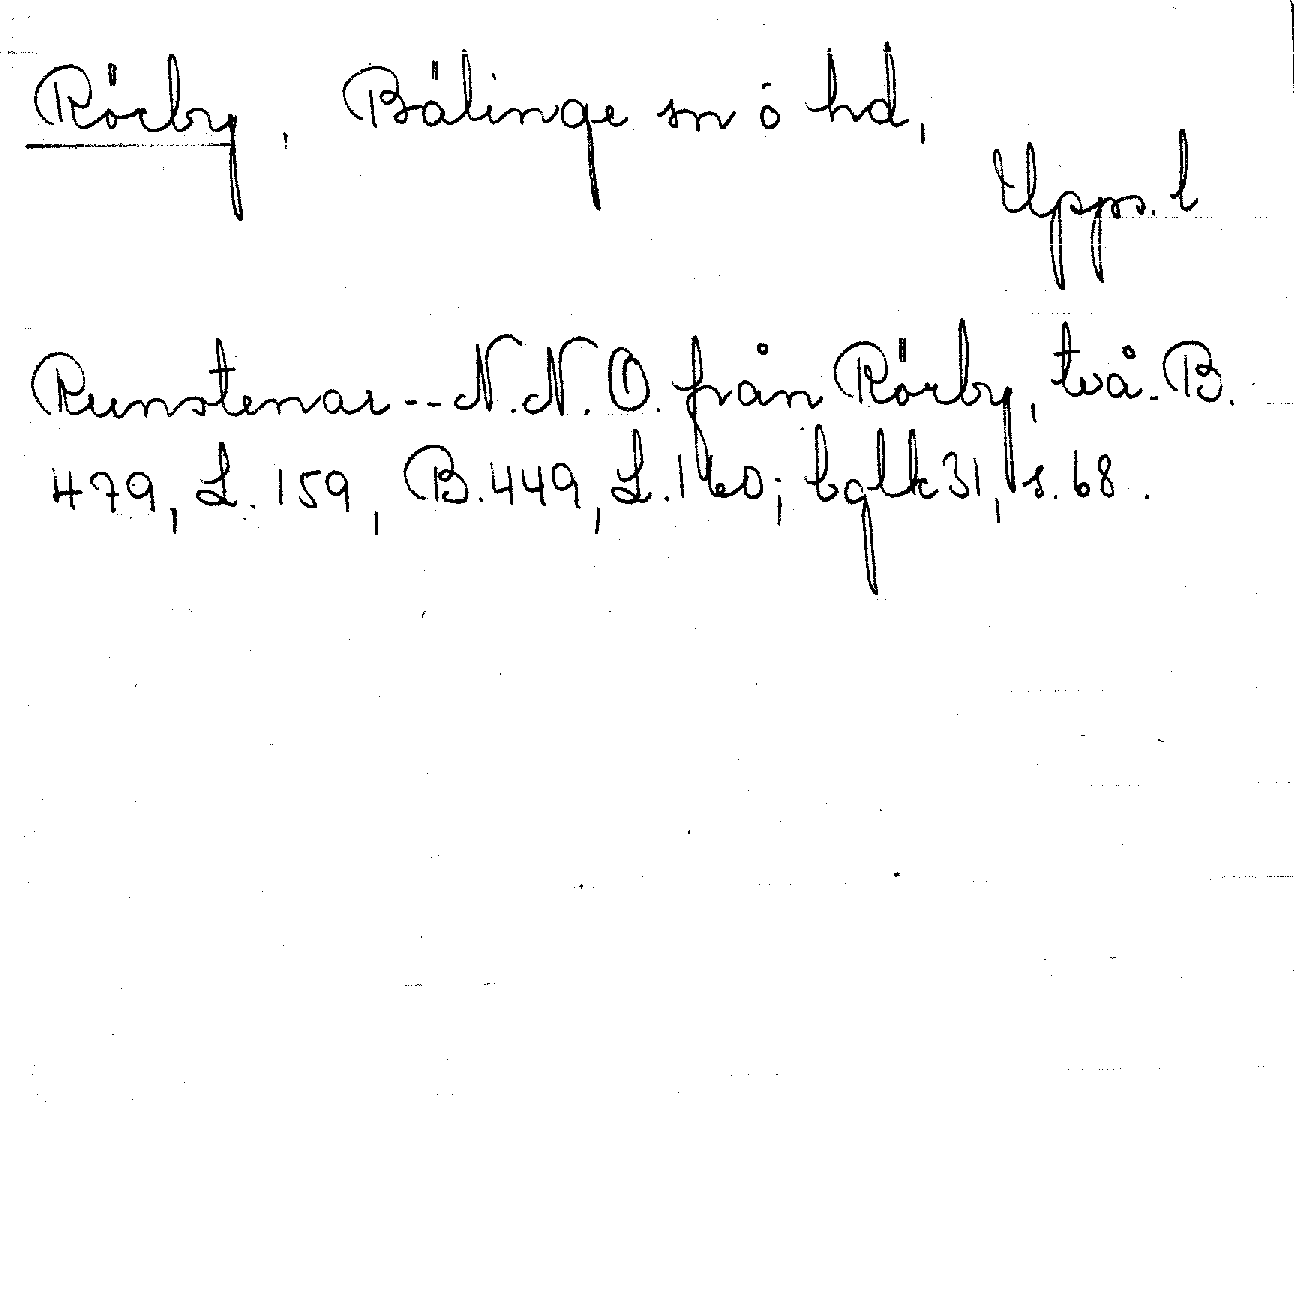 Rörby, Bälinge sn o hd,
Upps. l
Runstenar -- N.N.O. från Rörby, två. B.
479, L. 159, B. 449, L. 160; bglk 31, s. 68.